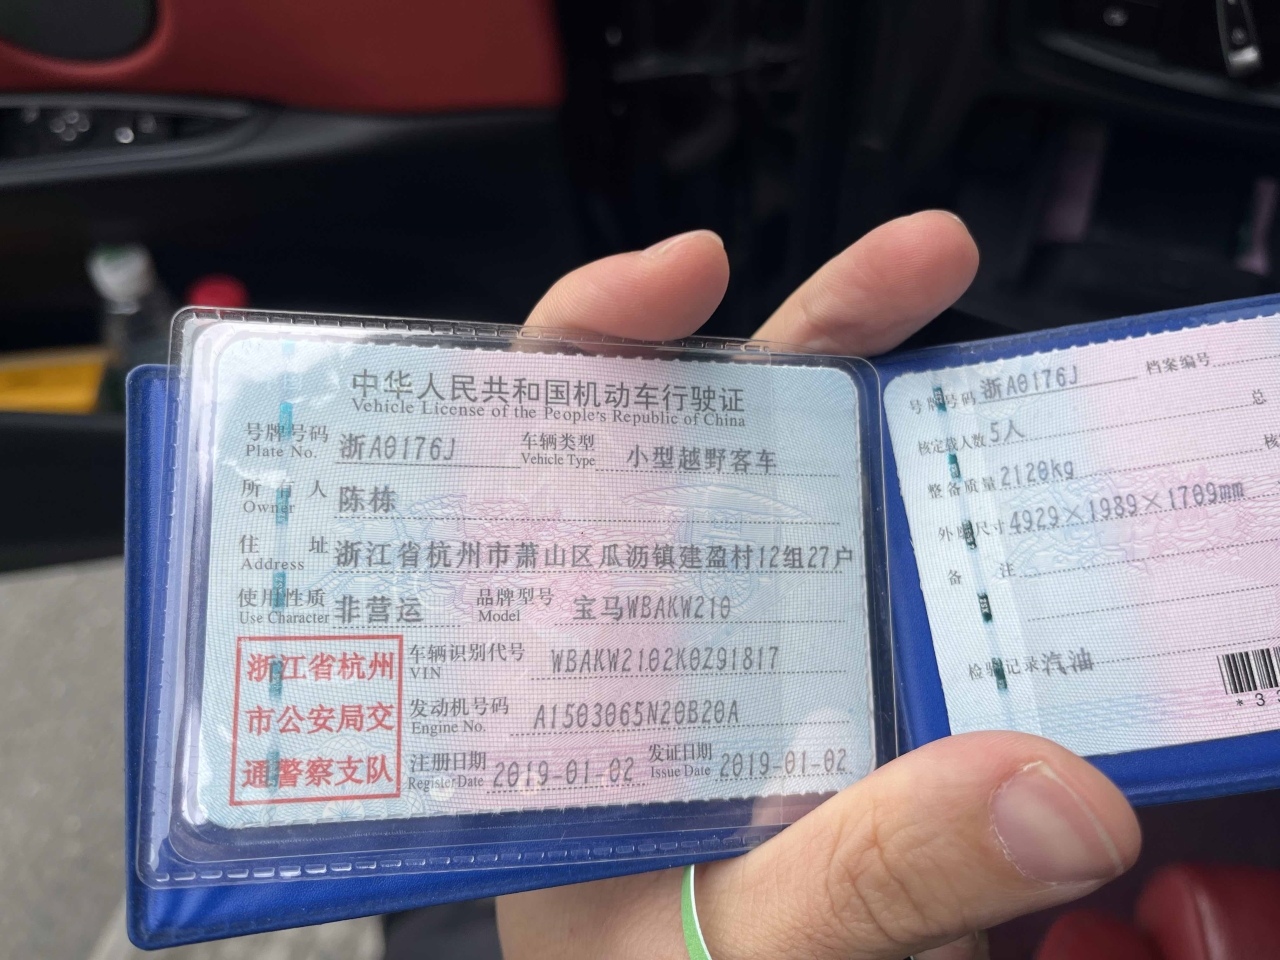 中华人民共和国机动车行驶证
Vehicle License of the People's Republic of China
号牌号码 浙A0176J 车辆类型 小型越野客车
Plate No. Vehicle Type
所有人 陈栋
Owner
住址 浙江省杭州市萧山区瓜沥镇建盈村12组27户
Address
使用性质 非营运 品牌型号 宝马WBAKW210
Use Character Model
浙江省杭州
市公安局交
通警察支队
车辆识别代号 WBAKW2102K0Z91817
VIN
发动机号码 A1503065N20B20A
Engine No.
注册日期 2019-01-02 发证日期 2019-01-02
Register Date Issue Date
号牌号码 浙A0176J 档案编号
核定载人数 5人 总
整备质量 2120kg 核
外廓尺寸 4929×1989×1709mm
备注
检验记录 汽油
*3